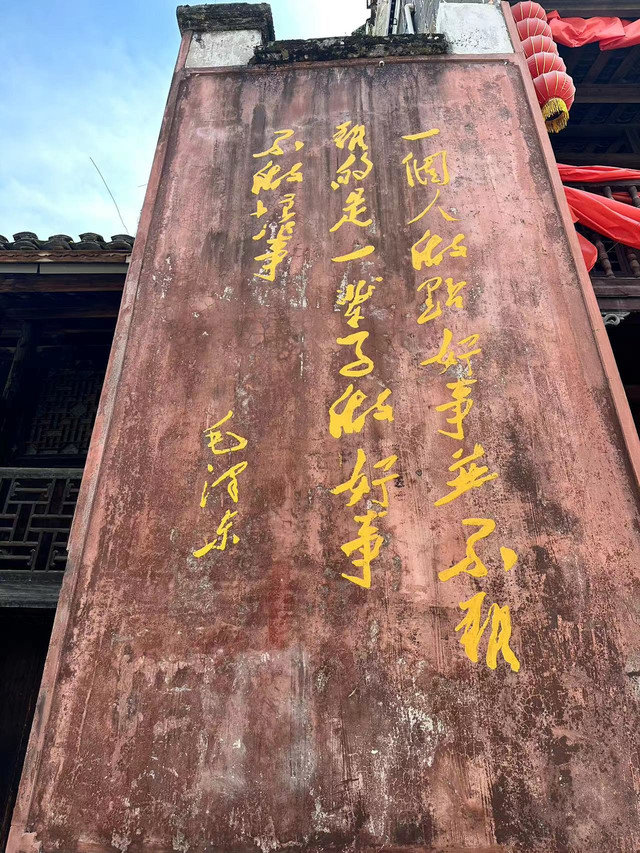 一個人做點好事並不難
難的是一輩子做好事
不做壞事
毛澤东